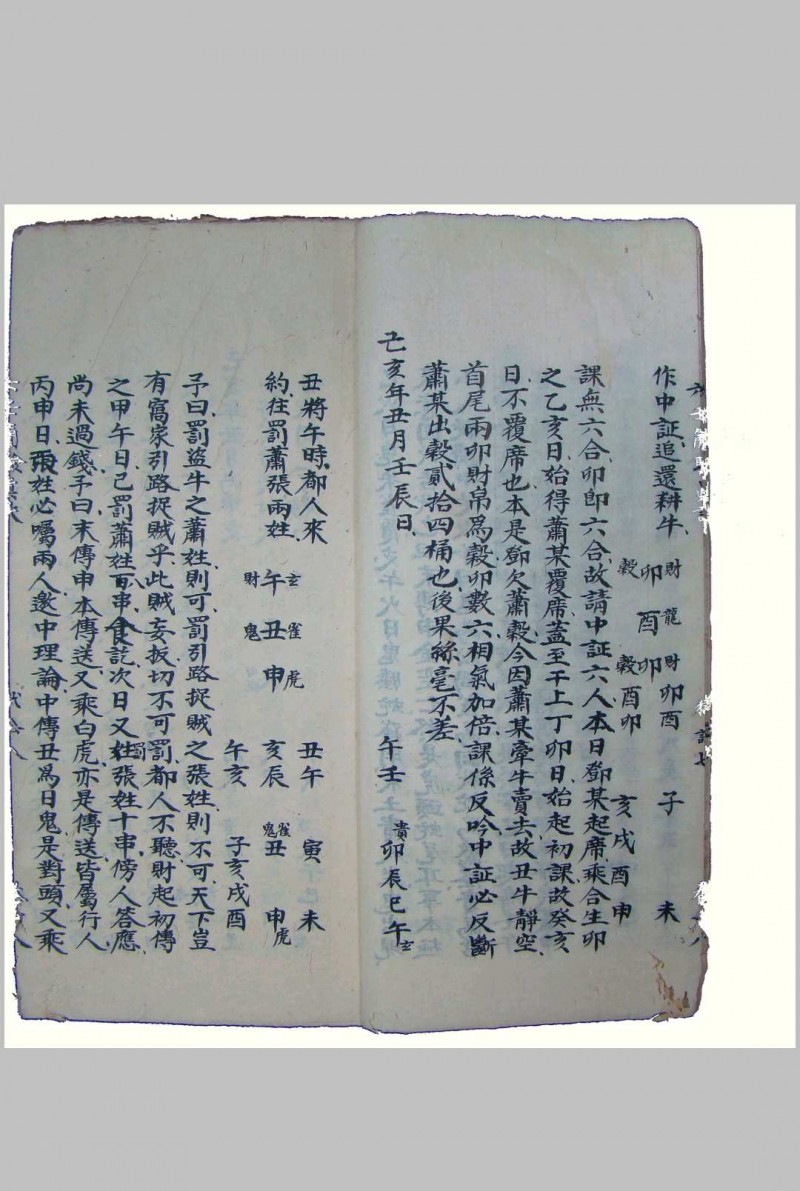 作中証追還耕牛
財龍財
卯酉卯
穀穀
卯酉
酉卯
子
亥戌酉申
未
課無六合卯即六合故請中証六人本日鄧某起席乘合生卯
之乙亥日始得蕭某覆席蓋至干上丁卯日始起初課故癸亥
日不覆席也本是鄧欠蕭穀今因蕭某牽牛賣去故丑牛靜空
首尾兩卯財帛為穀卯數六相氣加倍課係反吟中証必反斷
蕭某出穀貳拾四桶也後果絲毫不差
己亥年丑月壬辰日
午壬
貴卯辰巳午玄
丑將午時都人來
約往罰蕭張兩姓
玄雀虎
午丑申
財鬼
丑午
亥辰
午亥
寅未
雀鬼丑申虎
子亥戌酉
予曰罰盜牛之蕭姓則可罰引路捉賊之張姓則不可天下豈
有窩家引路捉賊乎此賊妄扳切不可罰都人不聽財起初傳
之甲午日已罰蕭姓百串食訖次日又罰張姓十串傍人答應
尚未過錢予曰末傳申本傳送又乘白虎亦是傳送皆屬行人
丙申日張姓必囑兩人邀中理論中傳丑為日鬼是對頭又乘